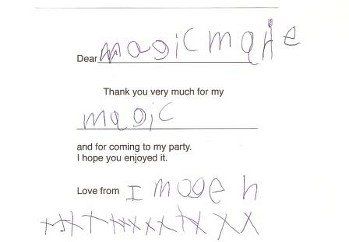 Dear magic
Thank you very much for my
magic
and for coming to my party.
I hope you enjoyed it.
Love from Imogen